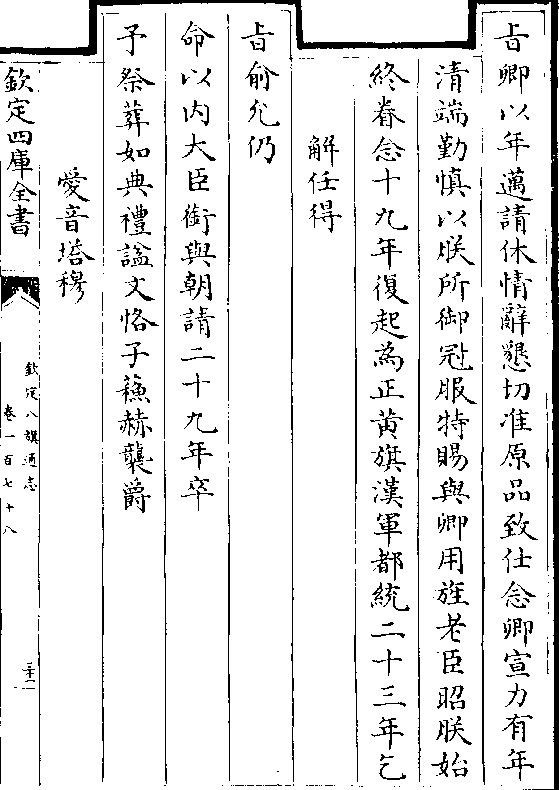 旨卿以年邁請休情辭懇切准原品致仕念卿宣力有年
清端勤慎以朕所御冠服特賜與卿用旌老臣昭朕始
終眷念十九年復起為正黄旗漢軍都統二十三年乞
解任得
旨俞允仍
命以内大臣銜與朝請二十九年卒
予祭葬如典禮諡文恪子蘓赫襲爵
愛音塔穆
欽定四庫全書
欽定八旗通志
卷一百七十八
三十二